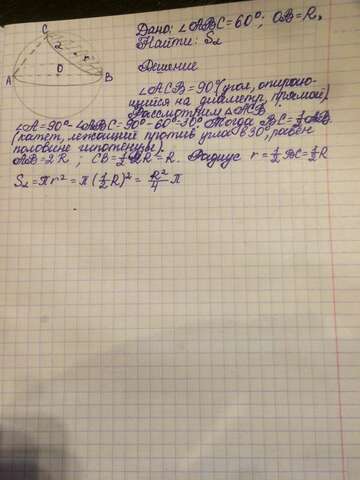 C
2
r
A
O
B
Дано: ∠ABC=60°; OB=R.
Найти: S₂
Решение
∠ACB=90° (угол, опираю-
щийся на диаметр, прямой).
Рассмотрим ∠ACB
∠A=90°-∠ABC=90°-60°=30° Тогда BC=½AB
(катет, лежащий против угла в 30°, равен
половине гипотенузы).
AB=2R; CB=½·2R=R. Радиус r=½BC=½R
S₂=πr²=π(½R)²=R²/4 π